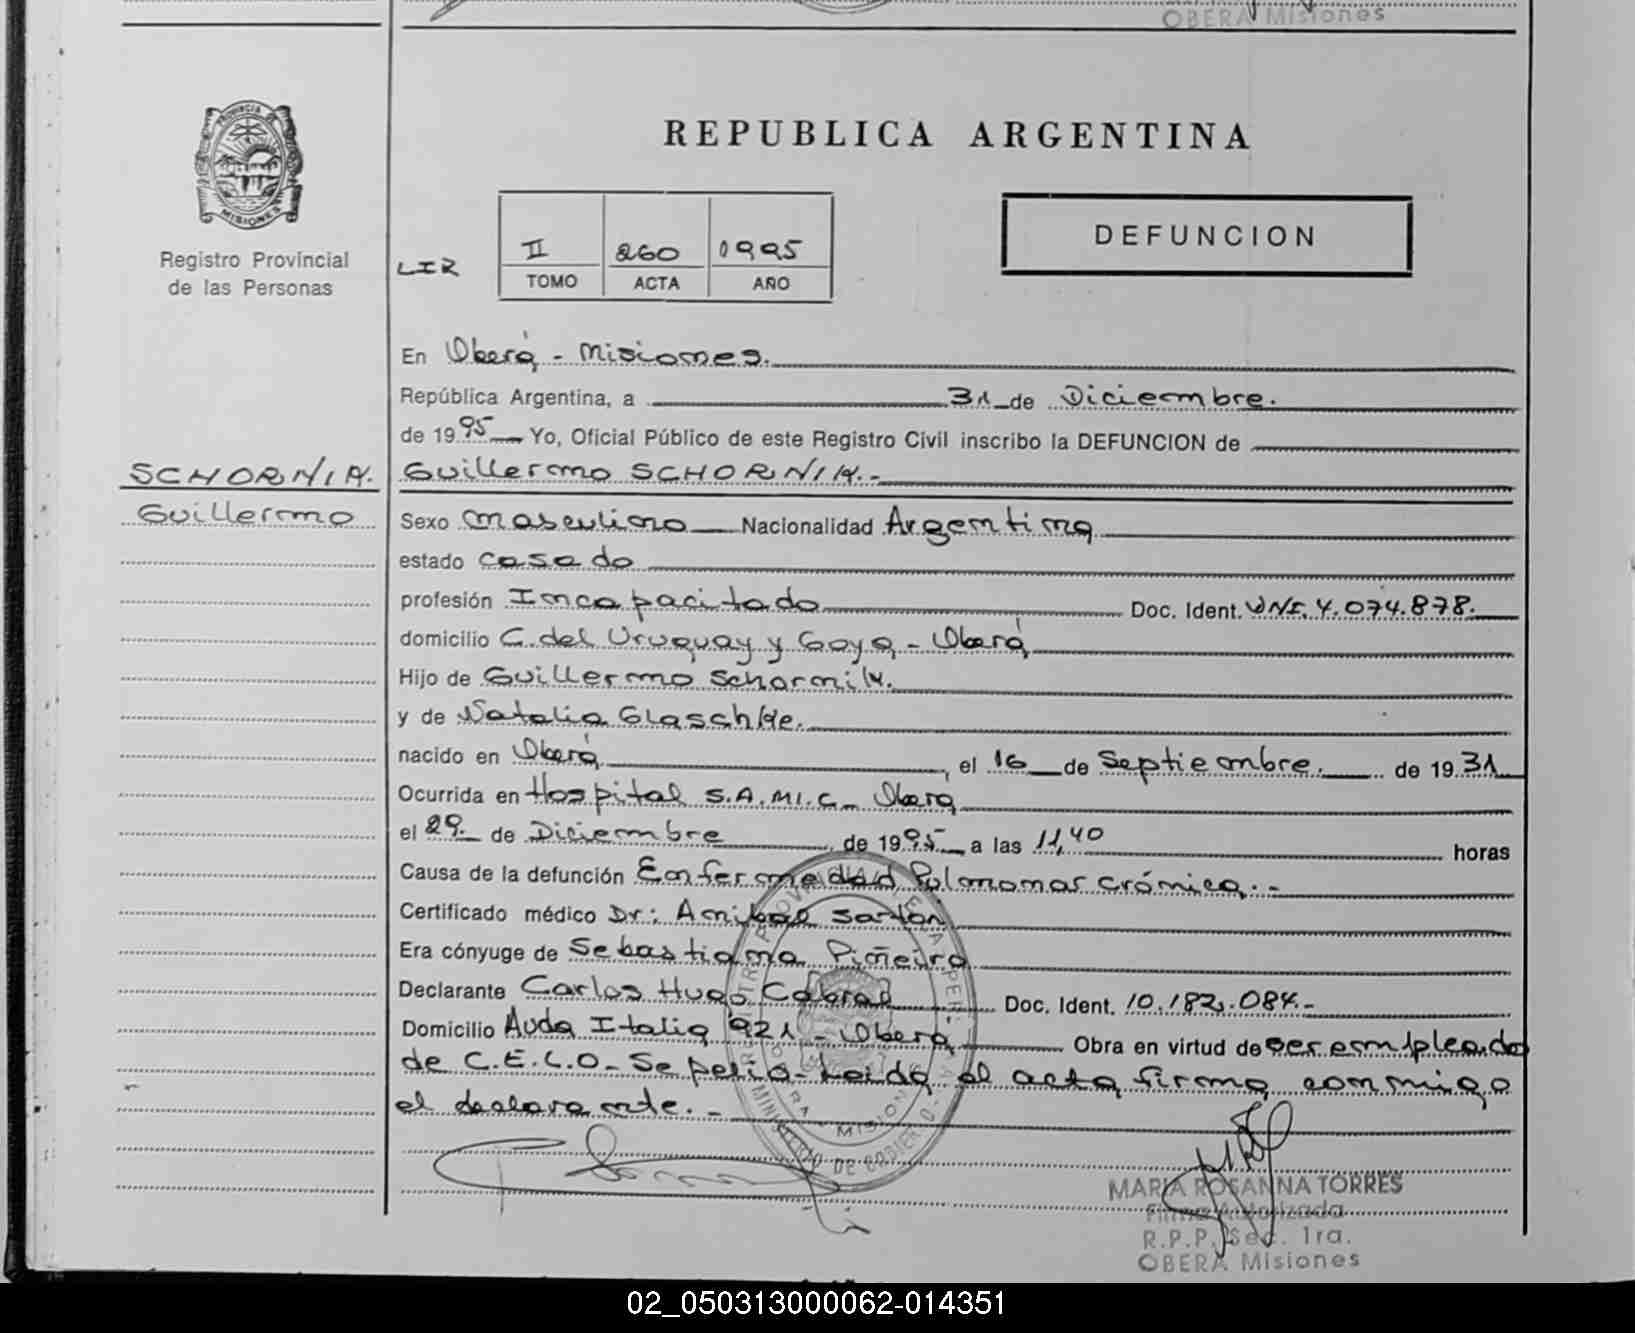 OBERA Misiones
PROVINCIA DE
MISIONES
Registro Provincial
de las Personas
REPUBLICA ARGENTINA
DEFUNCION
LIR
II 260 1995
TOMO ACTA AÑO
En Oberá - Misiones.
República Argentina, a 31 de Diciembre.
de 1995 Yo, Oficial Público de este Registro Civil inscribo la DEFUNCION de
SCHORNIK.
Guillermo
Guillermo SCHORNIK.-
Sexo masculino Nacionalidad Argentina
estado casado
profesión Incapacitado Doc. Ident. DNI. 4.074.878.
domicilio C. del Uruguay y Goya - Oberá
Hijo de Guillermo Schornik.
y de Natalia Glaschke.
nacido en Oberá, el 16 de Septiembre. de 1931
Ocurrida en Hospital S.A.M.I.C- Oberá
el 29. de Diciembre, de 1995 a las 11,40 horas
Causa de la defunción Enfermedad Pulmonar crónica.-
Certificado médico Dr: Anibal Sartori
Era cónyuge de Sebastiana Piñeiro
Declarante Carlos Hugo Cabral Doc. Ident. 10.182.084.-
Domicilio Avda Italia 921 - Oberá Obra en virtud de ser empleado
de C.E.L.O- Se peticio. Leida el acta firma conmigo
el declarante.-
MARIA ROSANNA TORRES
Firma Autorizada
R.P.P. Sec. 1ra.
OBERA Misiones
02_050313000062-014351